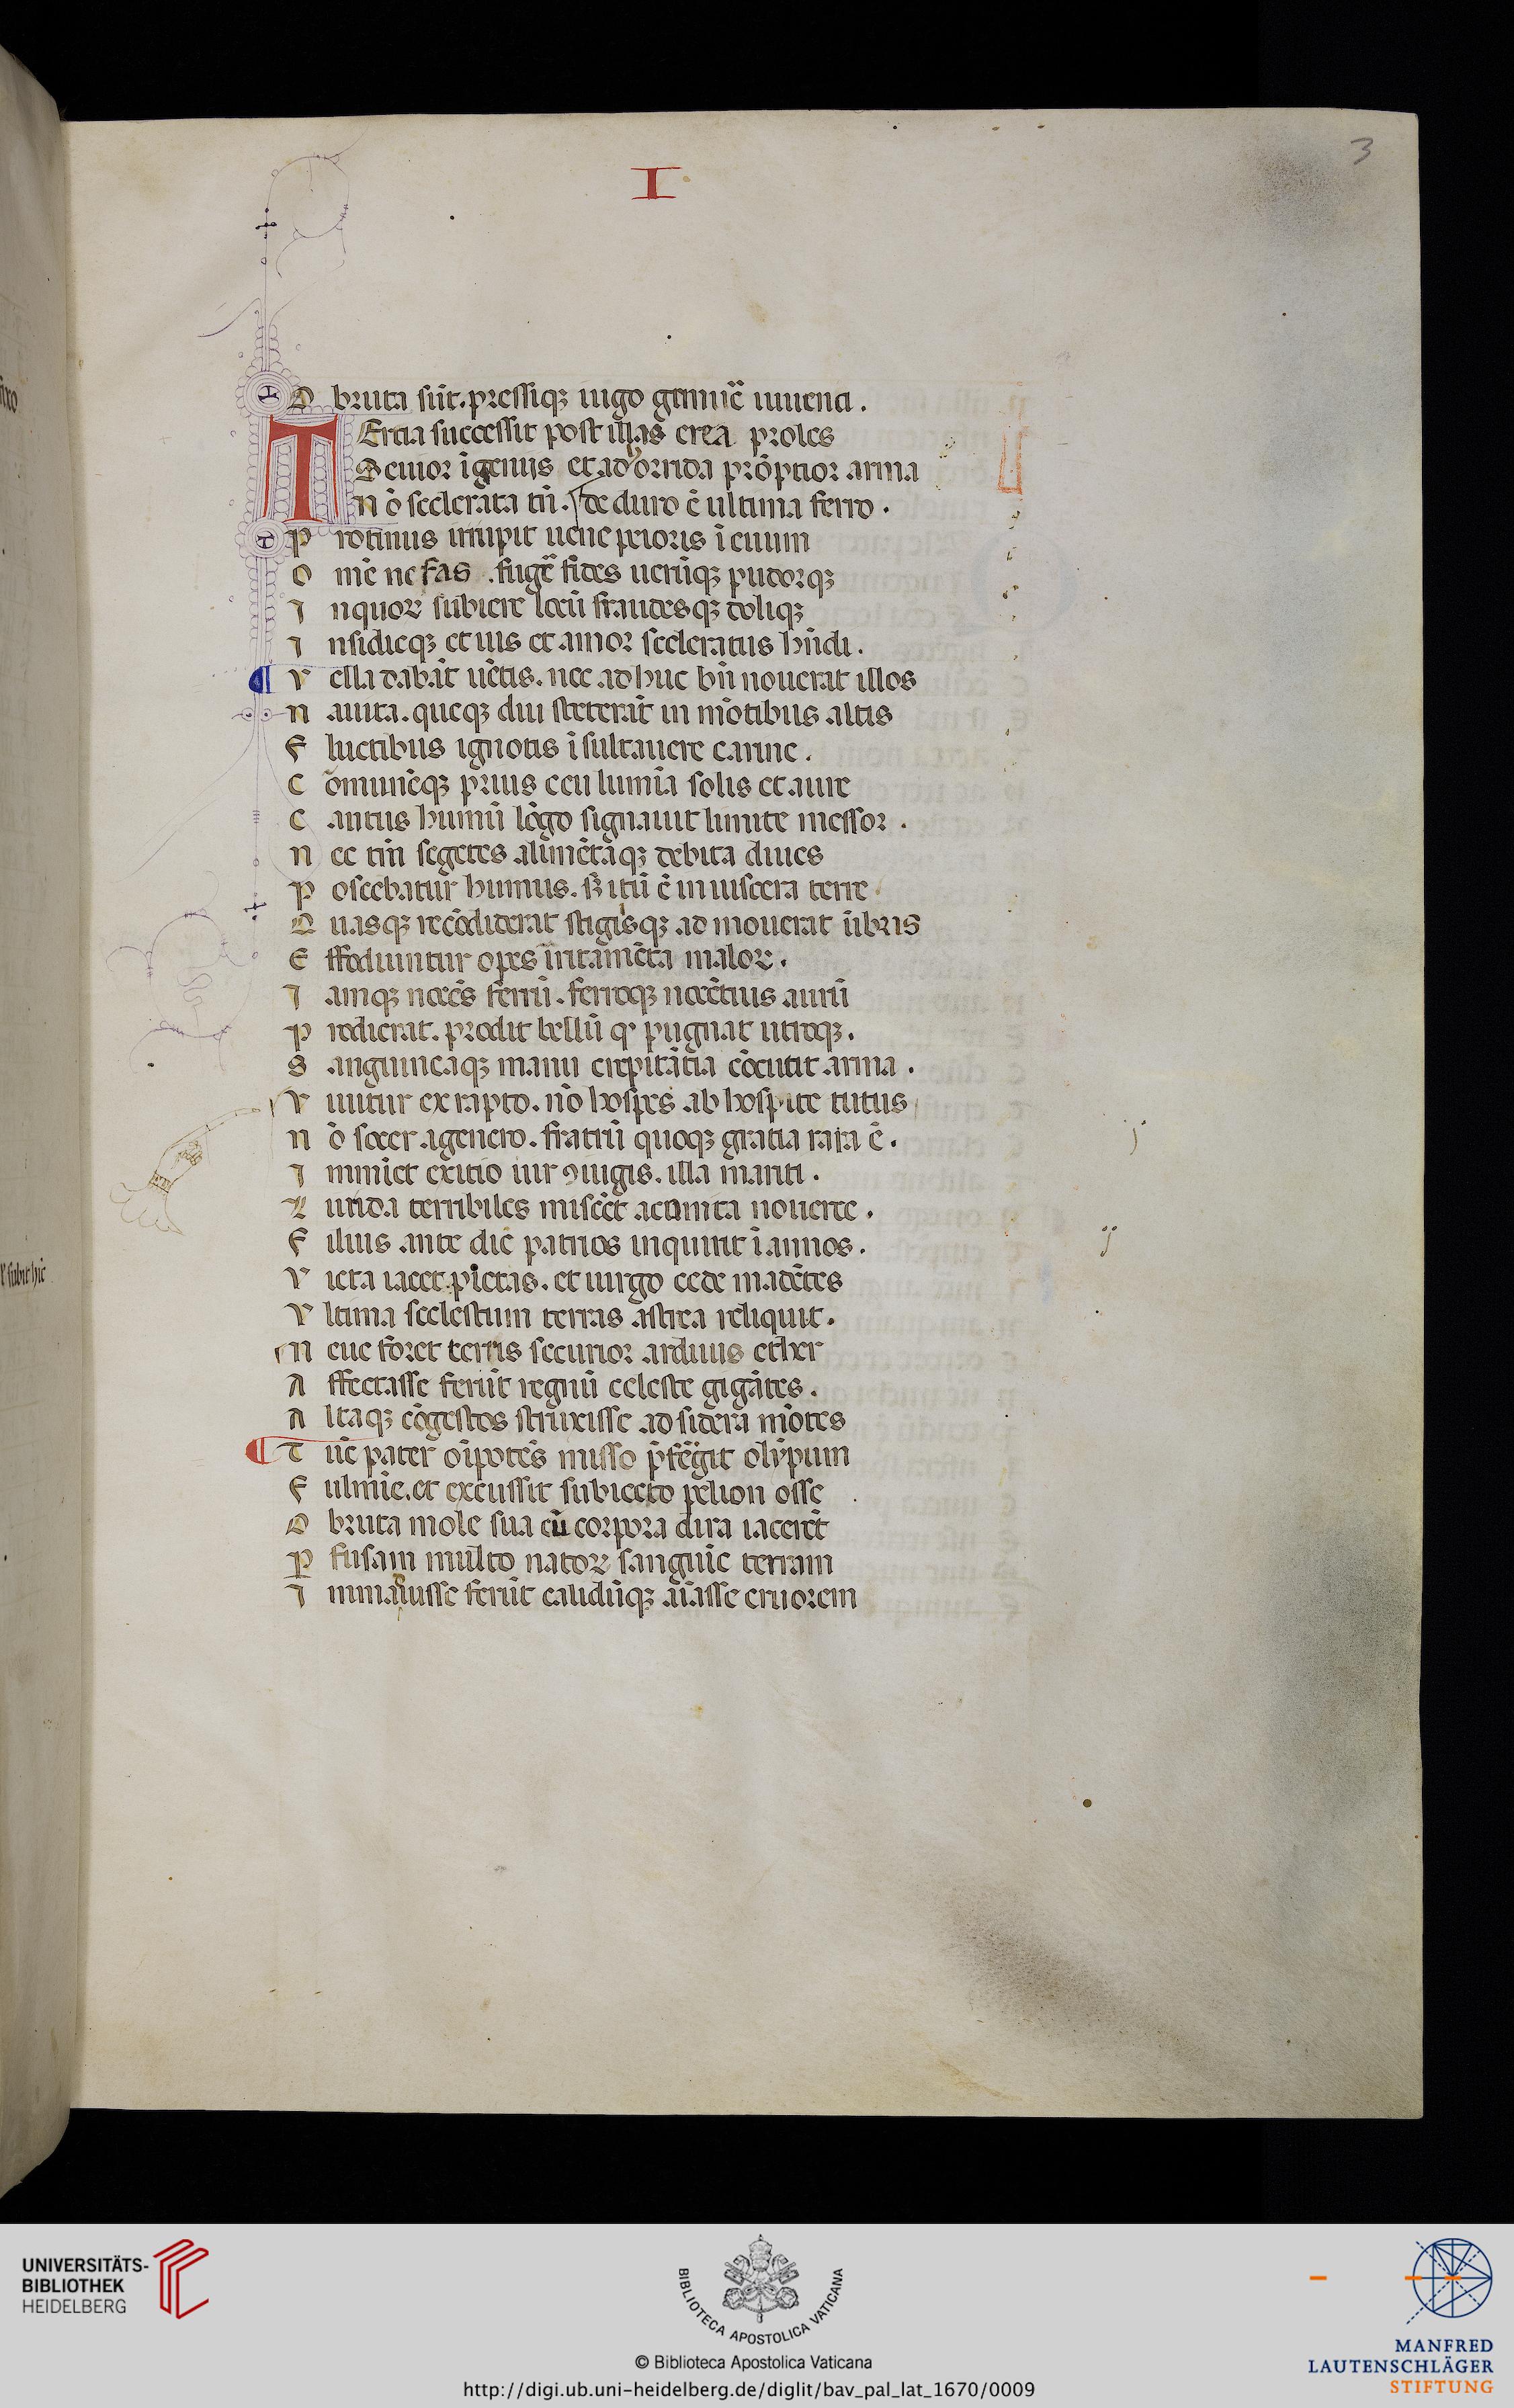 3
I
O bruta sūt. pressiqꝫ iugo gemuēr iuuenci.
TErcia successit post illas erea proles
Seuior īgenijs et ad horrida prōptior arma
Nō scelerata tn̄. de duro ē ultima ferro.
Protinus irrupit uene prioris ī euum
Om̄e nefas. fugēr fides uerūqꝫ pudorqꝫ
Inquoꝝ subiere locū fraudesqꝫ doliqꝫ
Insidieqꝫ et uis et amor sceleratus hn̄di.
Vella dabāt uētis. nec adhuc bn̄ nouerat illos
Nauita. queqꝫ diu steterāt in mōtibus altis
Fluctibus ignotis īsultauere carine.
Cōmunēqꝫ prius ceu lumīa solis et aure
Cautus humū lōgo signauit limite messor.
Nec tm̄ segetes alimētaqꝫ debita diues
Poscebatur humus. sꝫ itū ē in uiscera terre
Quasqꝫ recōdiderat stigisqꝫ admouerat ūbris
Effodiuntur opes irritamēta maloꝝ.
Iamqꝫ nocēs ferrū. ferroqꝫ nocētius aurū
Prodierat. prodit bellū qd pugnat utroqꝫ.
Sanguineaqꝫ manu crepitātia cōcutit arma.
Viuitur ex rapto. nō hospes ab hospite tutus
Nō socer a genero. fratrū quoqꝫ gratia rara ē.
Imminet exitio uir ꝯiugis. illa mariti.
Lurida terribiles miscēt aconita nouerce.
Filius ante diē patrios inquirit ī annos.
Victa iacet pietas. et uirgo cede madētes
Vltima scelestum terras astrea reliquit.
Neue foret terris securior arduus ether
Affectasse ferūt regnū celeste gigātes.
Altaqꝫ cōgestos struxisse ad sidera mōtes
Tūc pater oīpotēs misso p̄fregit olympum
Fulmīe. et excussit subiecto pelion osse
Obruta mole sua cū corpora dira iacerēt
Perfusam multo natoꝝ sanguīe terram
Immaduisse ferūt calidūqꝫ aīasse cruorem
UNIVERSITÄTS-
BIBLIOTHEK
HEIDELBERG
BIBLIOTECA APOSTOLICA VATICANA
© Biblioteca Apostolica Vaticana
http://digi.ub.uni-heidelberg.de/diglit/bav_pal_lat_1670/0009
MANFRED
LAUTENSCHLÄGER
STIFTUNG